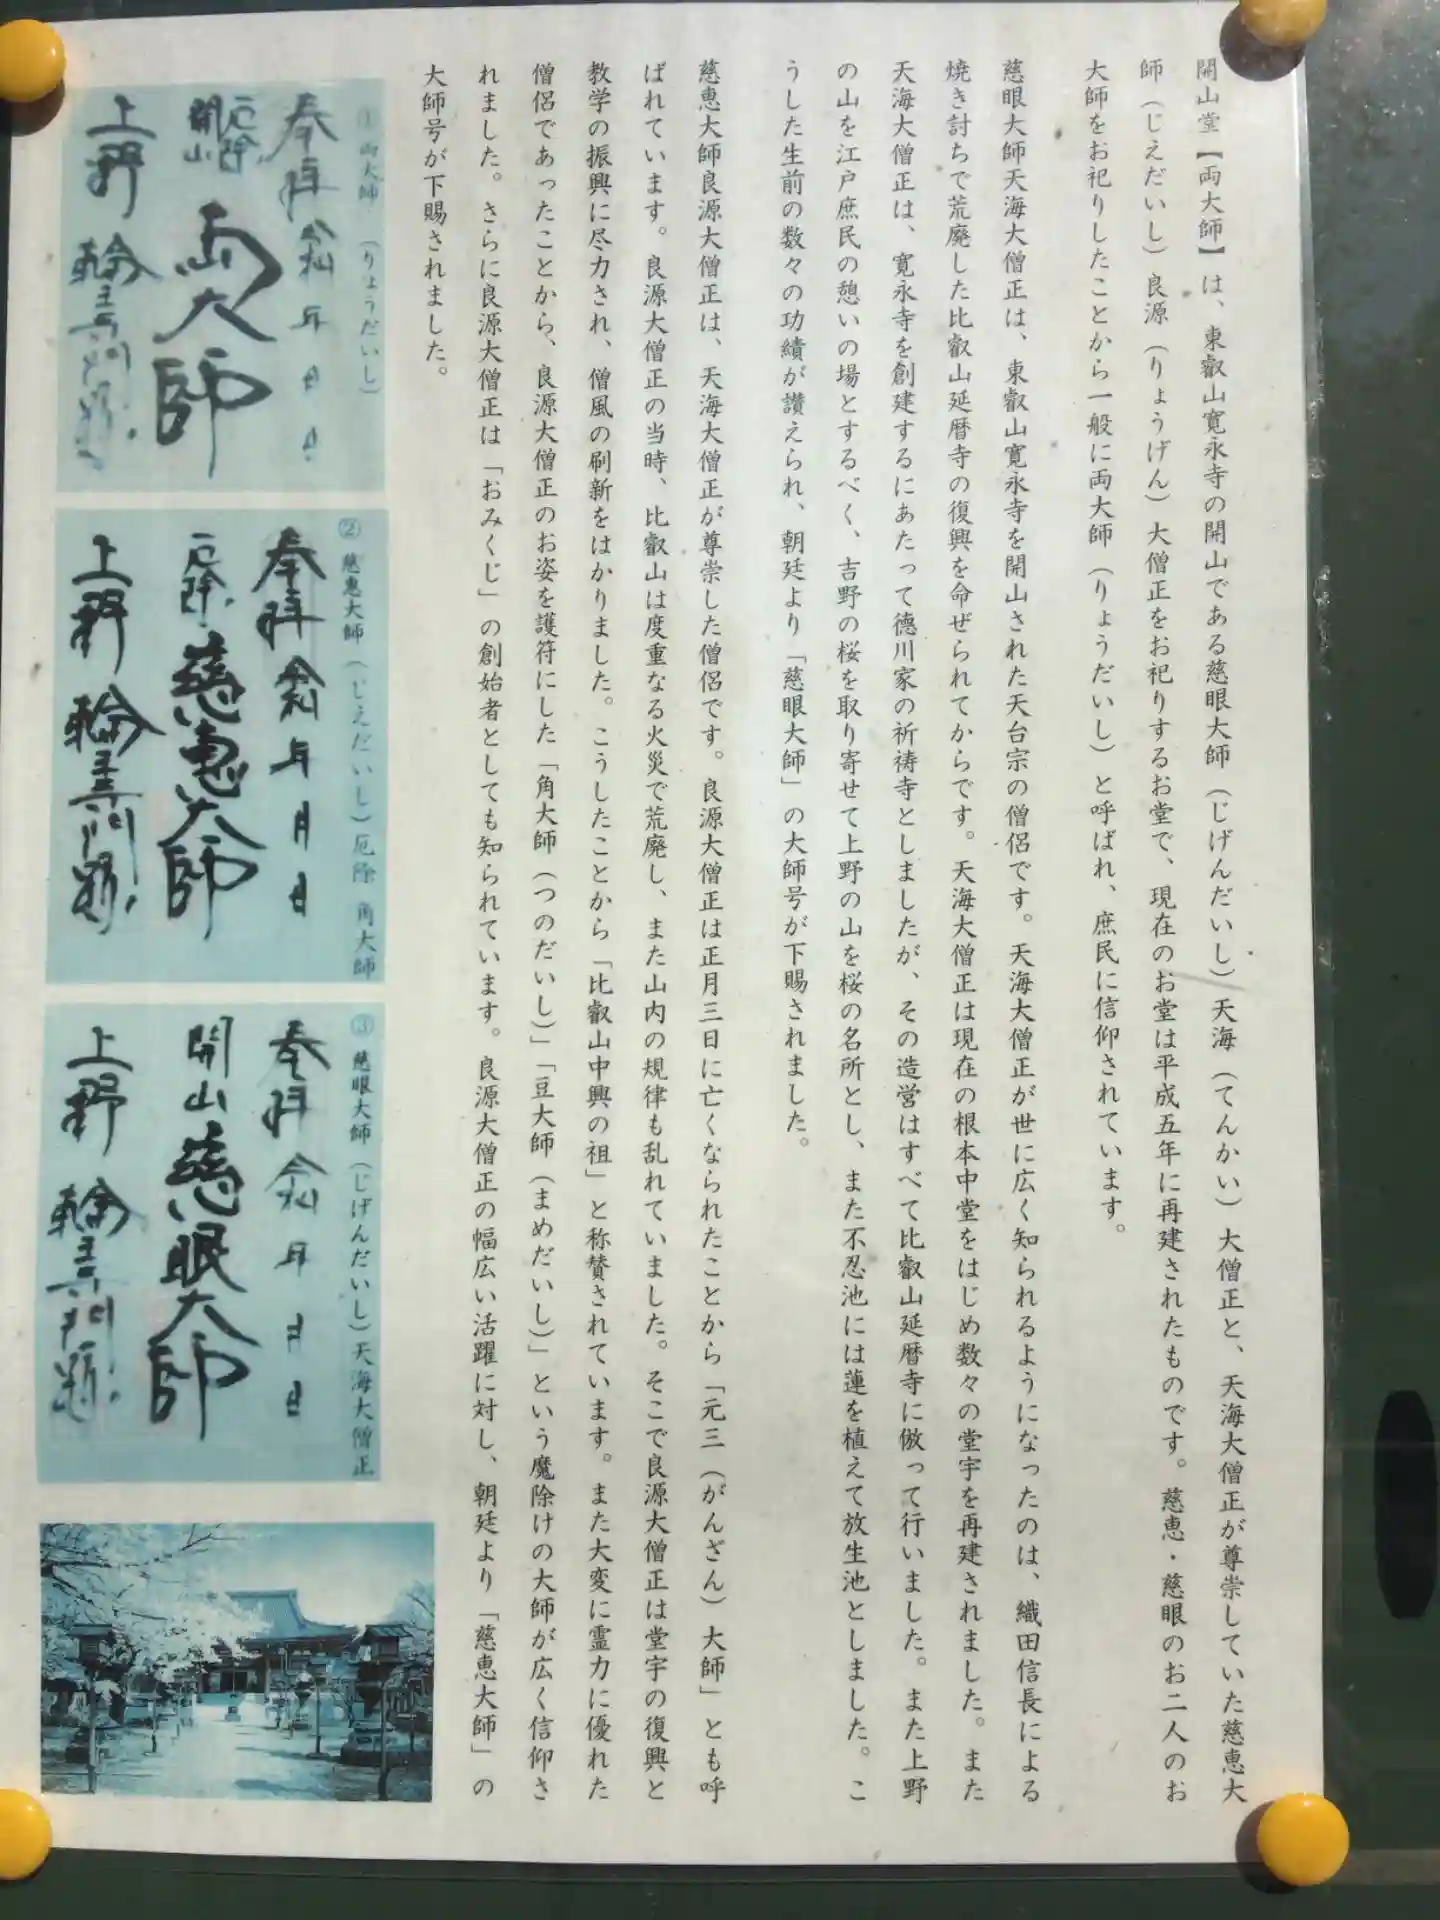 開山堂【両大師】は、東叡山寛永寺の開山である慈眼大師（じげんだいし）天海（てんかい）大僧正と、天海大僧正が尊崇していた慈恵大
師（じえだいし）良源（りょうげん）大僧正をお祀りするお堂で、現在のお堂は平成五年に再建されたものです。慈恵・慈眼のお二人のお
大師をお祀りしたことから一般に両大師（りょうだいし）と呼ばれ、庶民に信仰されています。
慈眼大師天海大僧正は、東叡山寛永寺を開山された天台宗の僧侶です。天海大僧正が世に広く知られるようになったのは、織田信長による
焼き討ちで荒廃した比叡山延暦寺の復興を命ぜられてからです。天海大僧正は現在の根本中堂をはじめ数々の堂宇を再建されました。また
天海大僧正は、寛永寺を創建するにあたって徳川家の祈祷寺としましたが、その造営はすべて比叡山延暦寺に倣って行いました。また上野
の山を江戸庶民の憩いの場とするべく、吉野の桜を取り寄せて上野の山を桜の名所とし、また不忍池には蓮を植えて放生池としました。こ
うした生前の数々の功績が讃えられ、朝廷より「慈眼大師」の大師号が下賜されました。
慈恵大師良源大僧正は、天海大僧正が尊崇した僧侶です。良源大僧正は正月三日に亡くなられたことから「元三（がんざん）大師」とも呼
ばれています。良源大僧正の当時、比叡山は度重なる火災で荒廃し、また山内の規律も乱れていました。そこで良源大僧正は堂宇の復興と
教学の振興に尽力され、僧風の刷新をはかりました。こうしたことから「比叡山中興の祖」と称賛されています。また大変に霊力に優れた
僧侶であったことから、良源大僧正のお姿を護符にした「角大師（つのだいし）」「豆大師（まめだいし）」という魔除けの大師が広く信仰さ
れました。さらに良源大僧正は「おみくじ」の創始者としても知られています。良源大僧正の幅広い活躍に対し、朝廷より「慈恵大師」の
大師号が下賜されました。
① 両大師（りょうだいし）
奉拝 令和 年 月 日
厄除
開山
両大師
上野 輪王寺門跡
② 慈恵大師（じえだいし）厄除 角大師
奉拝 令和 年 月 日
厄除 慈恵大師
上野 輪王寺門跡
③ 慈眼大師（じげんだいし）天海大僧正
奉拝 令和 年 月 日
開山 慈眼大師
上野 輪王寺門跡